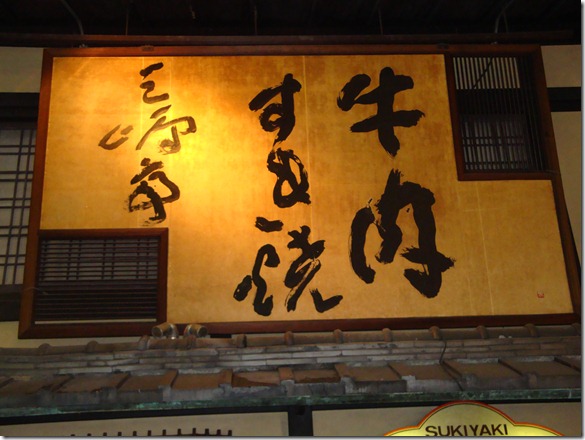 牛肉
すき焼
三嶋亭
SUKIYAKI